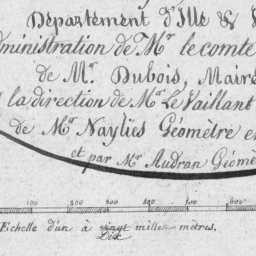 Département d'Ille &
dministration de Mr. le comte
de Mr. Dubois, Maire
la direction de Mr. Le Vaillant
de Mr. Naylies Géomètre en
et par Mr. Audran Géomè
100 200 300 400 500
Echelle d'un à vingt mille mètres.
Dix